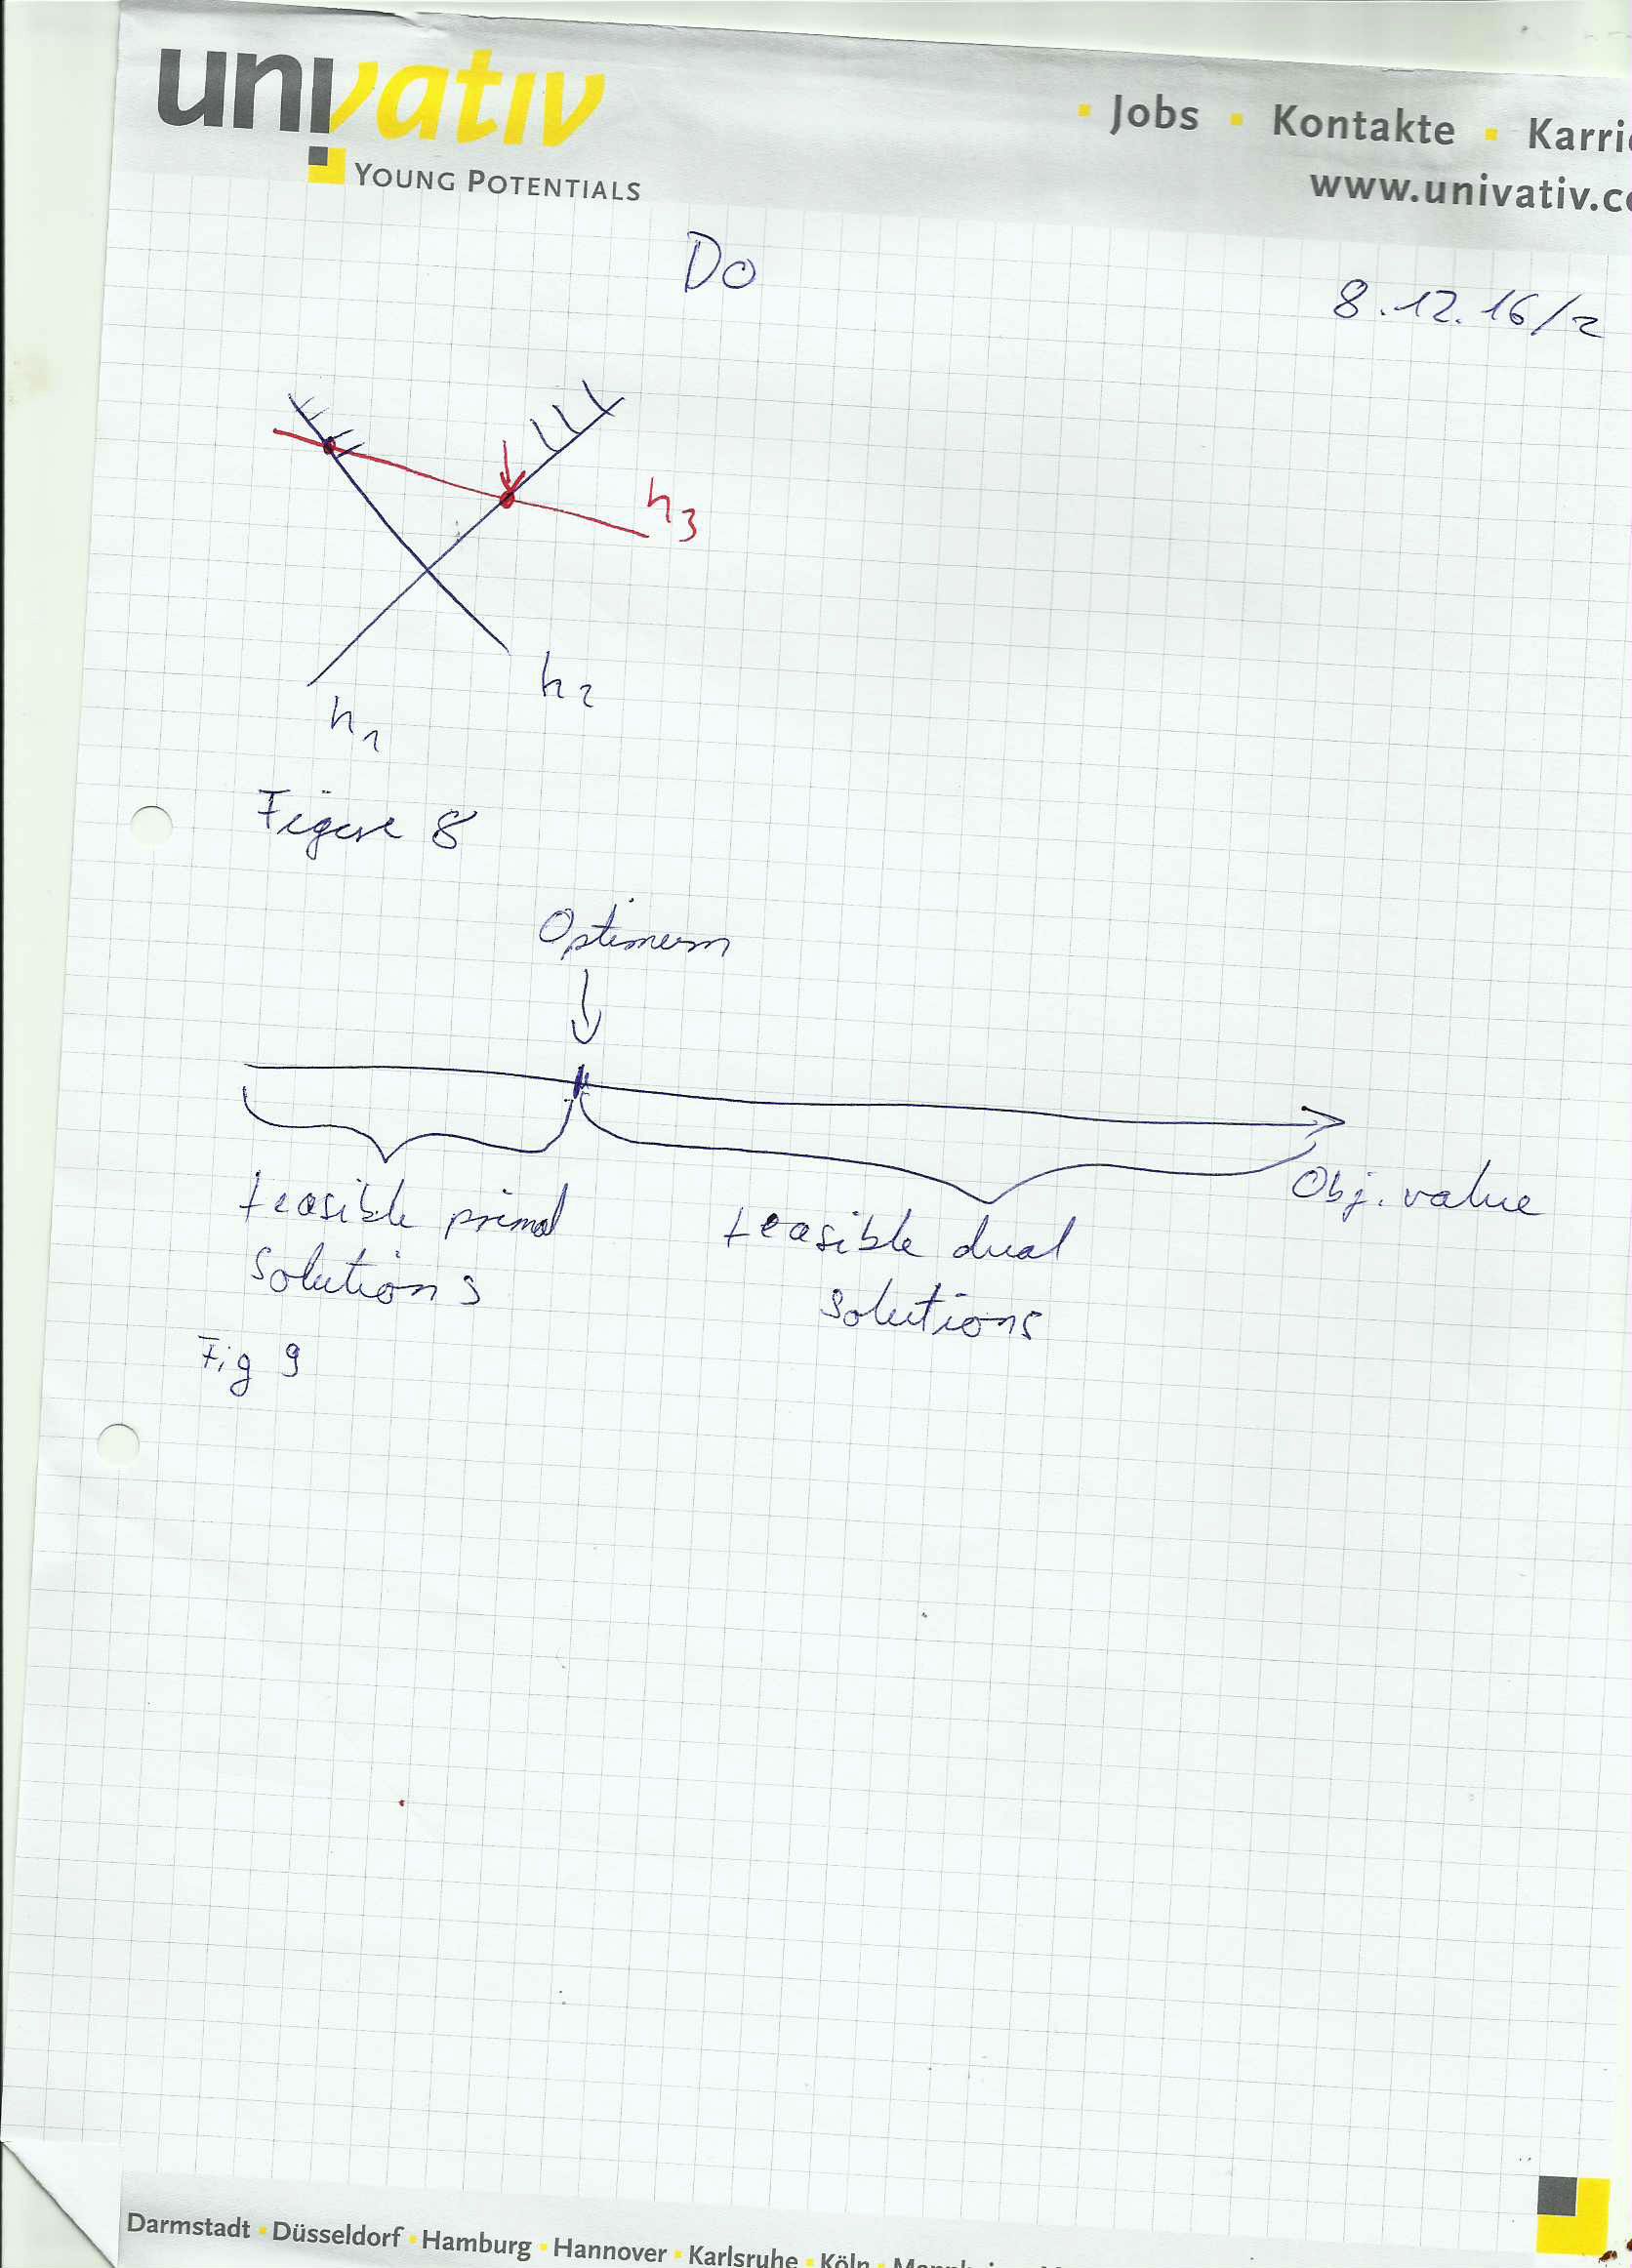 univativ
YOUNG POTENTIALS
▪ Jobs ▪ Kontakte ▪ Karri
www.univativ.c
Do
8.12.16/2
h3
h2
h1
Figure 8
Optimum
Obj. value
feasible primal
solutions
feasible dual
solutions
Fig 9
Darmstadt ▪ Düsseldorf ▪ Hamburg ▪ Hannover ▪ Karlsruhe ▪ Köln ▪